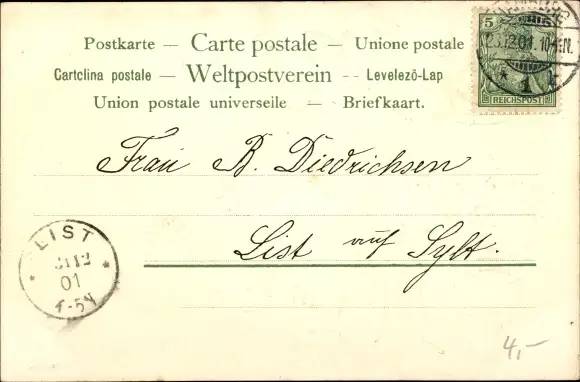 Postkarte — Carte postale — Unione postale
Cartclina postale — Weltpostverein -- Levelező-Lap
Union postale universeile — Briefkaart.
5
12.01. 10-11N.
* 1 k
REICHSPOST
Frau B. Diedrichsen
List auf Sylt.
LIST
* 31 12 *
01
4-5N
4,-